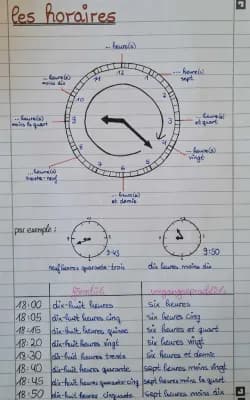 les horaires
... heure(s)
... heure(s)
moins dix
... heure(s)
sept
... heure(s)
moins le quart
... heure(s)
et quart
... heure(s)
vingt
... heure(s)
trente-neuf
... heure(s)
et demie
12
1
2
3
4
5
6
7
8
9
10
11
par exemple :
9:43
9:50
neuf heures quarante-trois
dix heures moins dix
18:00 dix-huit heures six heures
18:05 dix-huit heures cinq six heures cinq
18:15 dix-huit heures quinze six heures et quart
18:20 dix-huit heures vingt six heures vingt
18:30 dix-huit heures trente six heures et demie
18:40 dix-huit heures quarante sept heures moins vingt
18:45 dix-huit heures quarante-cinq sept heures moins le quart
18:50 dix-huit heures cinquante sept heures moins dix